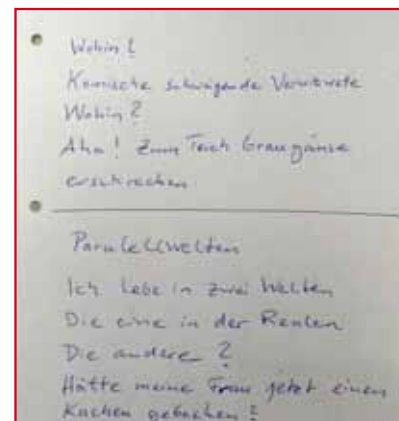 Wohin?
Komische schweigende Verwitwete
Wohin?
Aha! Zum Teich Graugänse
erschrecken
Paralellwelten
Ich lebe in zwei Welten
Die eine in der Realen
Die andere?
Hätte meine Frau jetzt einen
Kuchen gebacken?